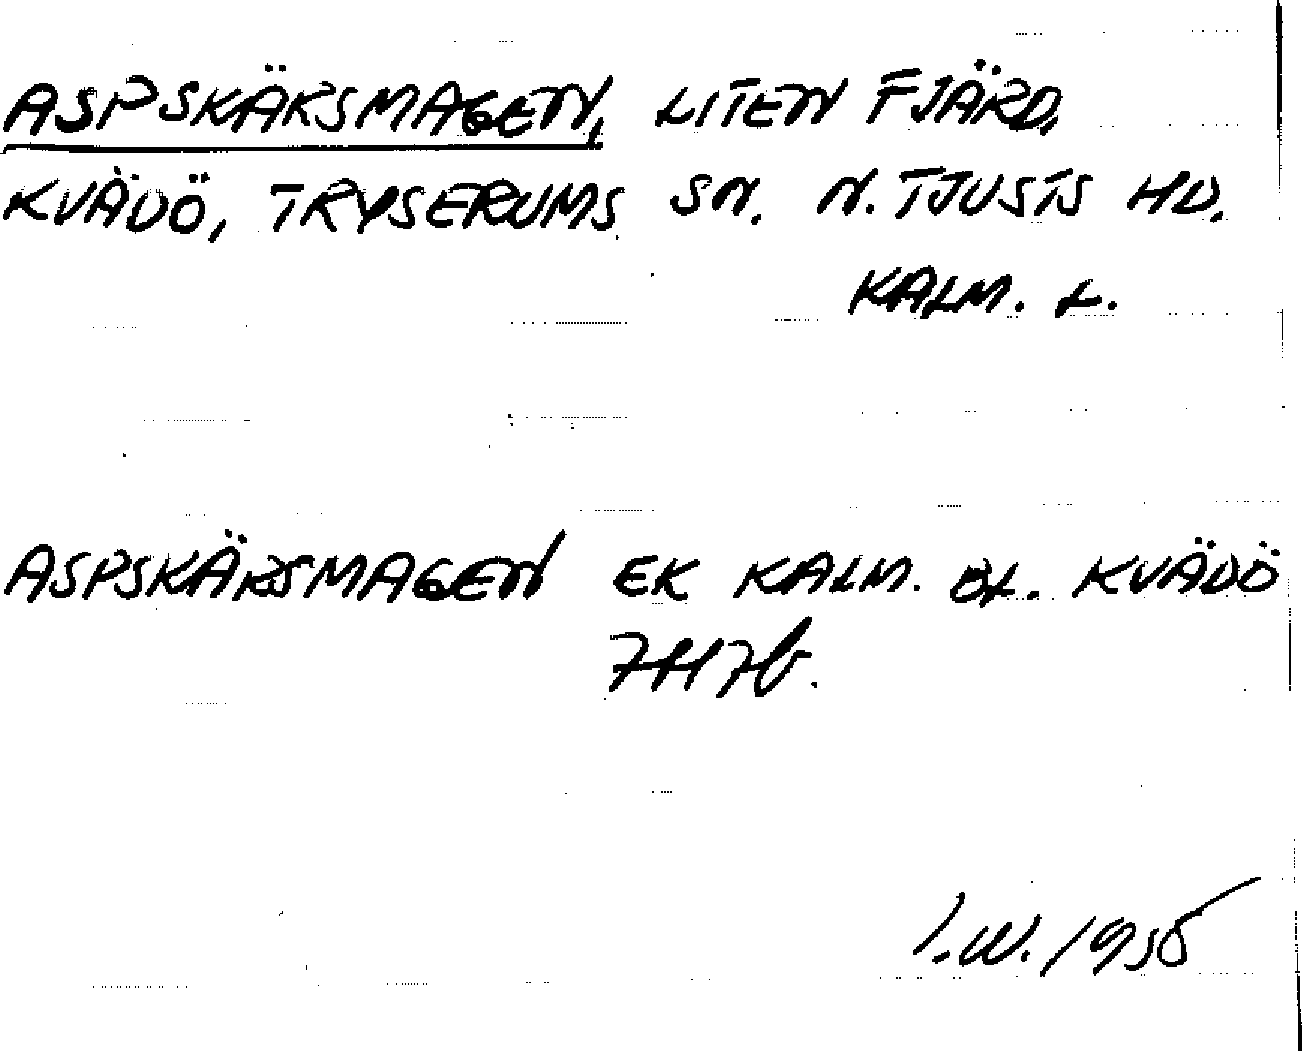 ASPSKÄRSMAGEN, LITEN FJÄRD,
KVÄDÖ, TRYSERUMS SN. N. TJUSTS HD.
KALM. L.
ASPSKÄRSMAGEN EK KALM. BL. KVÄDÖ
7H7b.
I.W. 1955